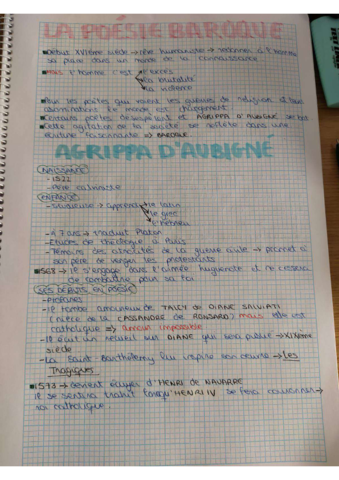 LA POÉSIE BAROQUE
Début XVIème siècle → rêve humaniste → redonner à l'homme
sa place dans un monde de la connaissance
Mais l'homme c'est → l'excès
→ la brutalité
→ la violence
Pour les poètes qui vivent les guerres de religion et leurs
abominations le monde est changement
Certains poètes désespèrent et AGRIPPA D'AUBIGNÉ se bat
Cette agitation de la société se reflète dans une
écriture foisonnante => BAROQUE
AGRIPPA D'AUBIGNÉ
NAISSANCE
- 1552
- Père calviniste
ENFANCE
- Studieuse → apprend → le latin
→ le grec
→ l'hébreu
- A 7 ans → traduit Platon
- Etudes de théologie à Paris
- Témoins des atrocités de la guerre civile → promet à
son père de venger les protestants
1568 → il s'engage dans l'armée huguenote et ne cessera
de combattre pour sa foi
SES DÉBUTS EN POÉSIE
- Profanes
- Il tombe amoureux de TALCY de DIANE SALVIATI
(nièce de la CASSANDRE de RONSARD) mais elle est
catholique => l'amour impossible
- Il écrit un recueil sur DIANE qui sera publié → XIXème
siècle
- La Saint-Barthélemy lui inspire son œuvre → Les
Tragiques
1573 → devient écuyer d'HENRI de NAVARRE
il se sentira trahit lorsqu'HENRI IV se fera couronner →
roi catholique.